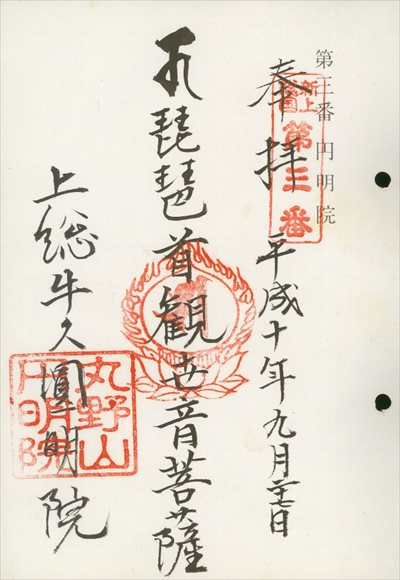 第三番 円明院
新上
総国
第三番
奉拝 平成十年九月
琵琶首観世音菩薩
上総牛久圓明院
丸野山
円明院